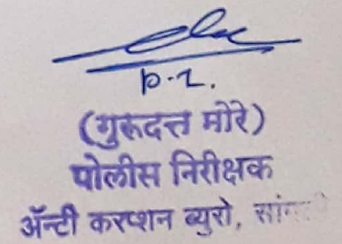 p.2.
(गुरुदत्त मोरे)
पोलीस निरीक्षक
ॲन्टी करप्शन ब्युरो,